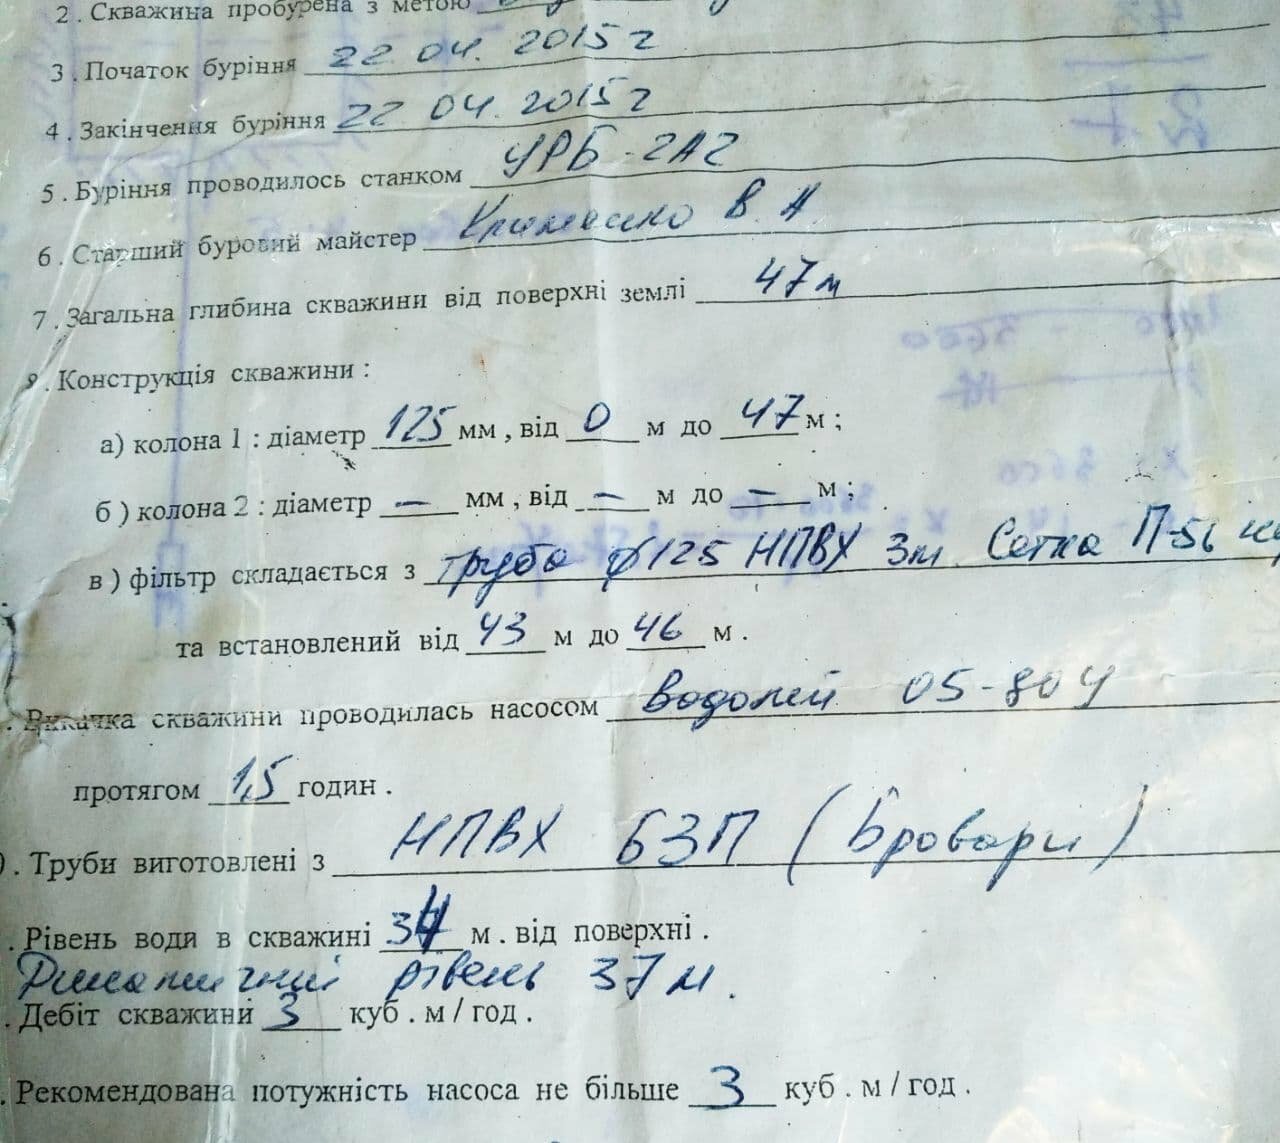 2. Скважина пробурена з метою
3. Початок буріння 22 04. 2015 г
4. Закінчення буріння 22 04. 2015 г
5. Буріння проводилось станком УРБ-2А2
6. Старший буровий майстер В. А
7. Загальна глибина скважини від поверхні землі 47 м
8. Конструкція скважини:
а) колона 1: діаметр 125 мм, від 0 м до 47 м;
б) колона 2: діаметр — мм, від — м до — м;
в) фільтр складається з труба ф125 НПВХ 3м. Сетка П-56
та встановлений від 43 м до 46 м.
. Викачка скважини проводилась насосом Водолей 05-80 У
протягом 1,5 годин.
. Труби виготовлені з НПВХ БЗП (Бровари)
. Рівень води в скважині 34 м. від поверхні.
Динамичний рівень 37 м.
. Дебіт скважини 3 куб. м / год.
. Рекомендована потужність насоса не більше 3 куб. м / год.